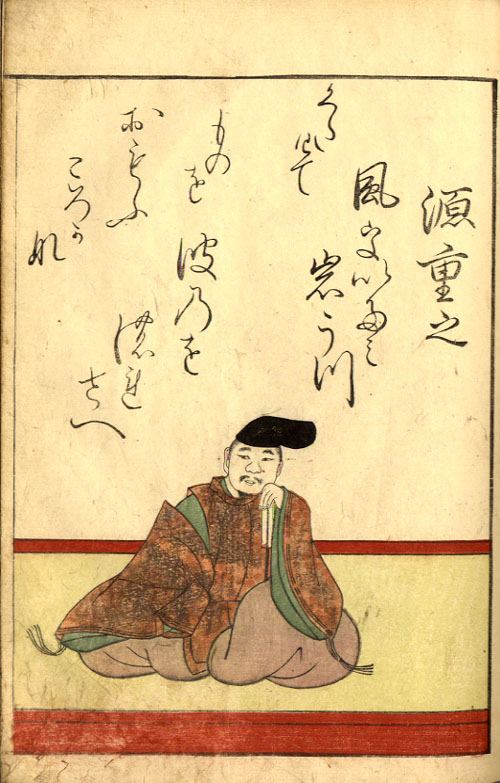 源重之
風をいたみ
岩うつ
波乃を
のれ
さへ
くたけて
ものを
おもふ
ころか
な